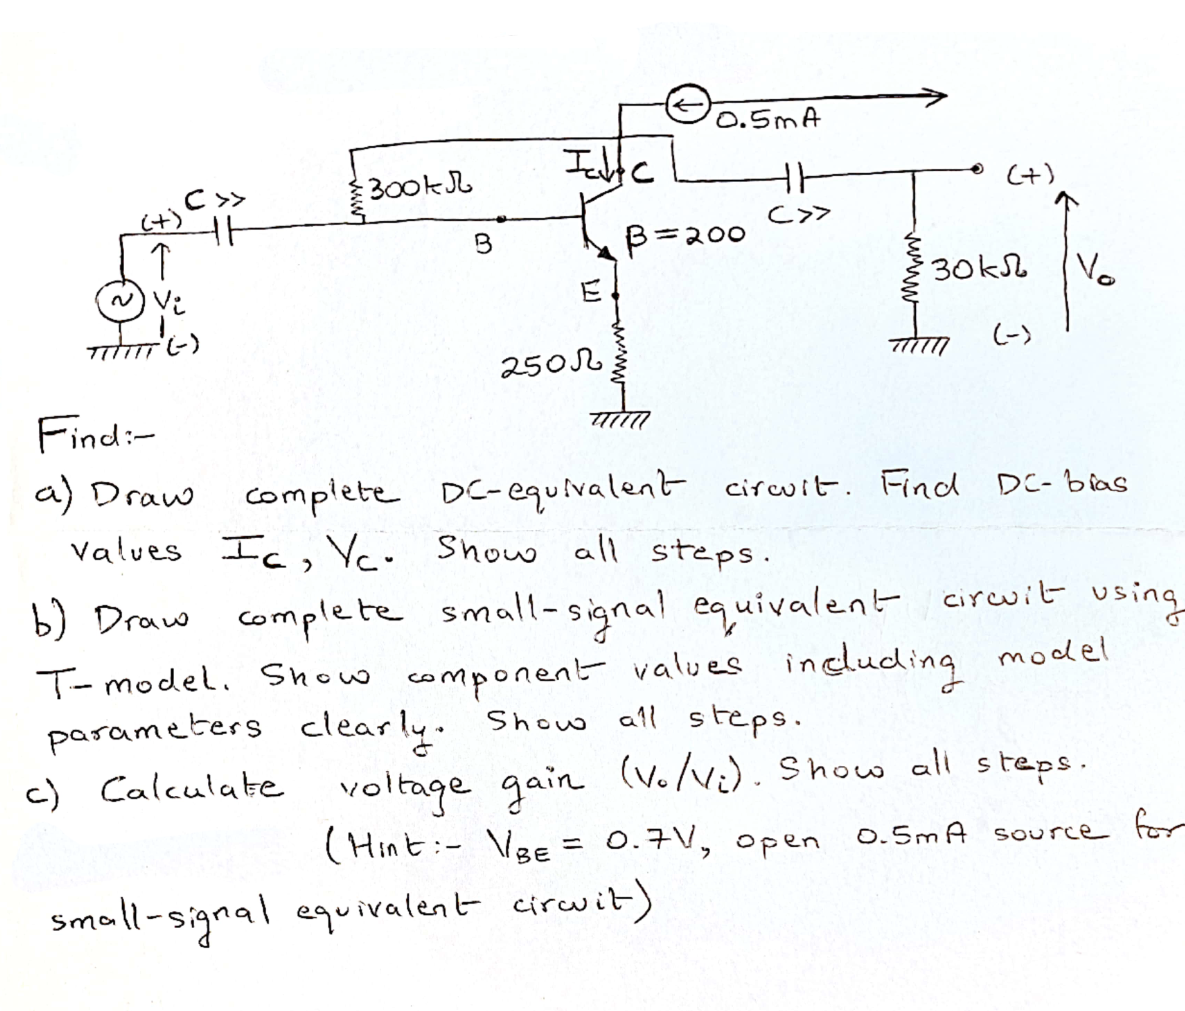 0.5mA
Ic↓ C
300kΩ
C >>
(+)
(+)
C >>
B
β=200
Vi
E
30kΩ
Vo
(-)
(-)
250Ω
Find:-
a) Draw complete DC-equivalent circuit. Find DC-bias
values Ic, Vc. Show all steps.
b) Draw complete small-signal equivalent circuit using
T-model. Show component values including model
parameters clearly. Show all steps.
c) Calculate voltage gain (Vo/Vi). Show all steps.
(Hint:- VBE = 0.7V, open 0.5mA source for
small-signal equivalent circuit)